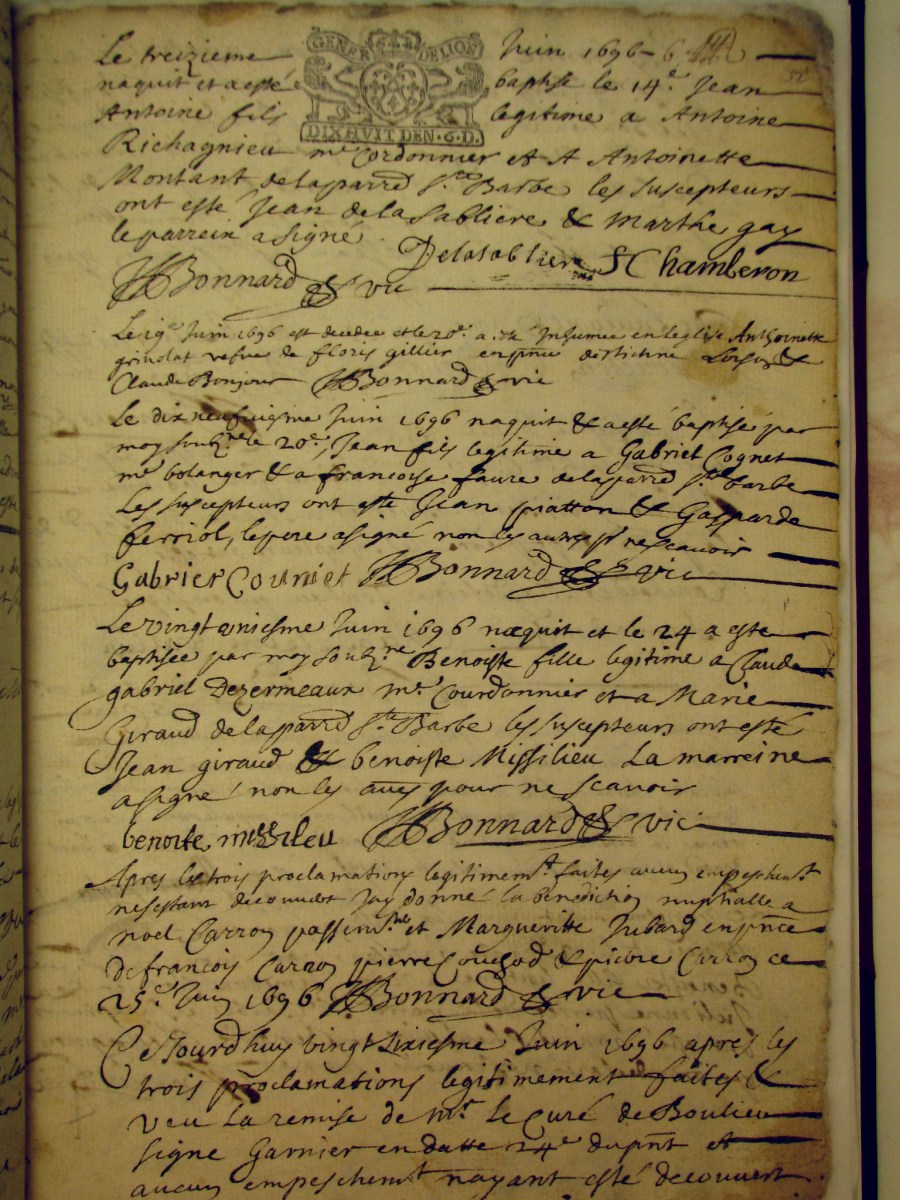 GENER DELION
DIXHUIT DEN. 6. D.
Le treizieme Juin 1696
naquit et a esté baptisé le 14e. Jean
Antoine fils legitime a Antoine
Richagnieu me Cordonnier et A Antoinette
Montant, de la parred ste Barbe les suscepteurs
ont esté Jean de la Sabliere & Marthe gay
le parrein a signé
Delasabliere S Chamberon
Bonnard vic
Le 19e Juin 1696 est decedee et le 20e a esté Inhumee en leglise Anthoinette
grindat vefve de floris gillier en pnce &
Claude Bonjour Bonnard vic
Le dix neufuiesme Juin 1696 naquit & a esté baptisé par
moy soubz.ne le 20e, Jean fils legitime a Gabriel Cognet
me bolanger & a francoise faure de la parred ste barbe
Les suscepteurs ont esté Jean piatton & Gasparde
ferriol, le pere a signé non les autres pr ne scavoir
Gabrier Couniet Bonnard vic
Le vingt Juin 1696 naequit et le 24 a este
baptisée par moy soubz.ne Benoiste fille legitime a Claude
gabriel Dezermeaux me Courdonnier et a Marie
Giraud de la parred ste Barbe les suscepteurs ont esté
Jean giraud & benoiste Missilieu La marreine
a signé non les aues pour ne scavoir
benoite missileu Bonnard vic
Apres les trois proclamations legitimemt. faites aucun empeschemt.
ne sestant decouvert Jay donné la benediction nuptialle a
noel Carron passem.tier et Margueritte Jubard en pnce
de francois Carron pierre & pierre Carron ce
25e. Juin 1696 Bonnard vic
Ce Jourdhuy vingt sixiesme Juin 1696 apres les
trois proclamations legitimement faites &
veu La remise de Mr. Le Curé de Boulieu
signe Garnier en datte 24e dupnt et
aucun empeschemt. nayant esté decouvert